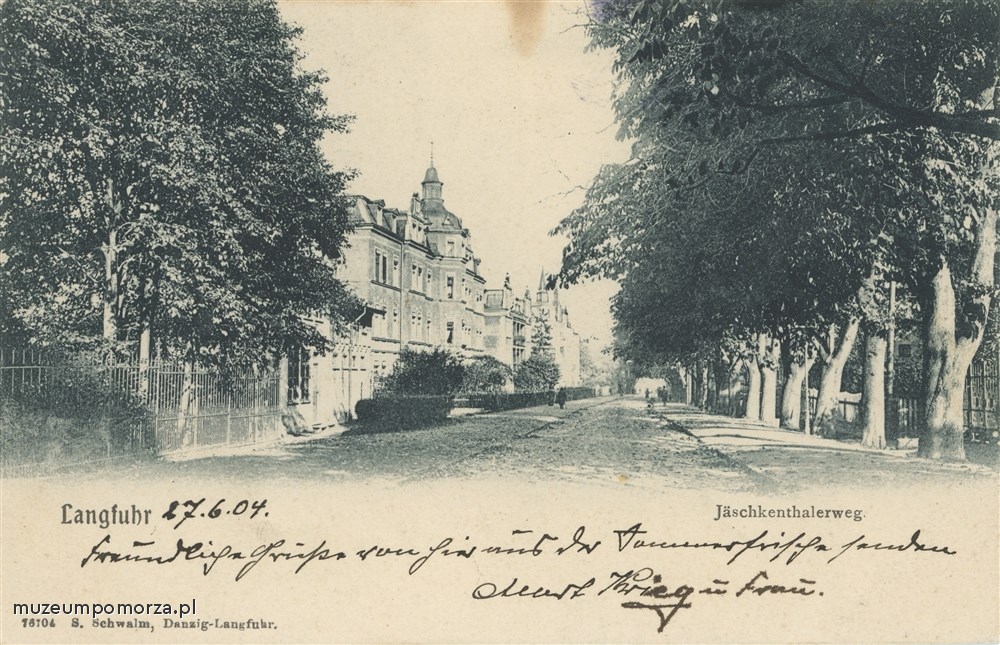 Langfuhr 27.6.04. Jäschkenthalerweg.
Freundliche Grüße von hier aus der Sommerfrische senden
Albert Krieg u Frau.
muzeumpomorza.pl
76104 S. Schwalm, Danzig-Langfuhr.